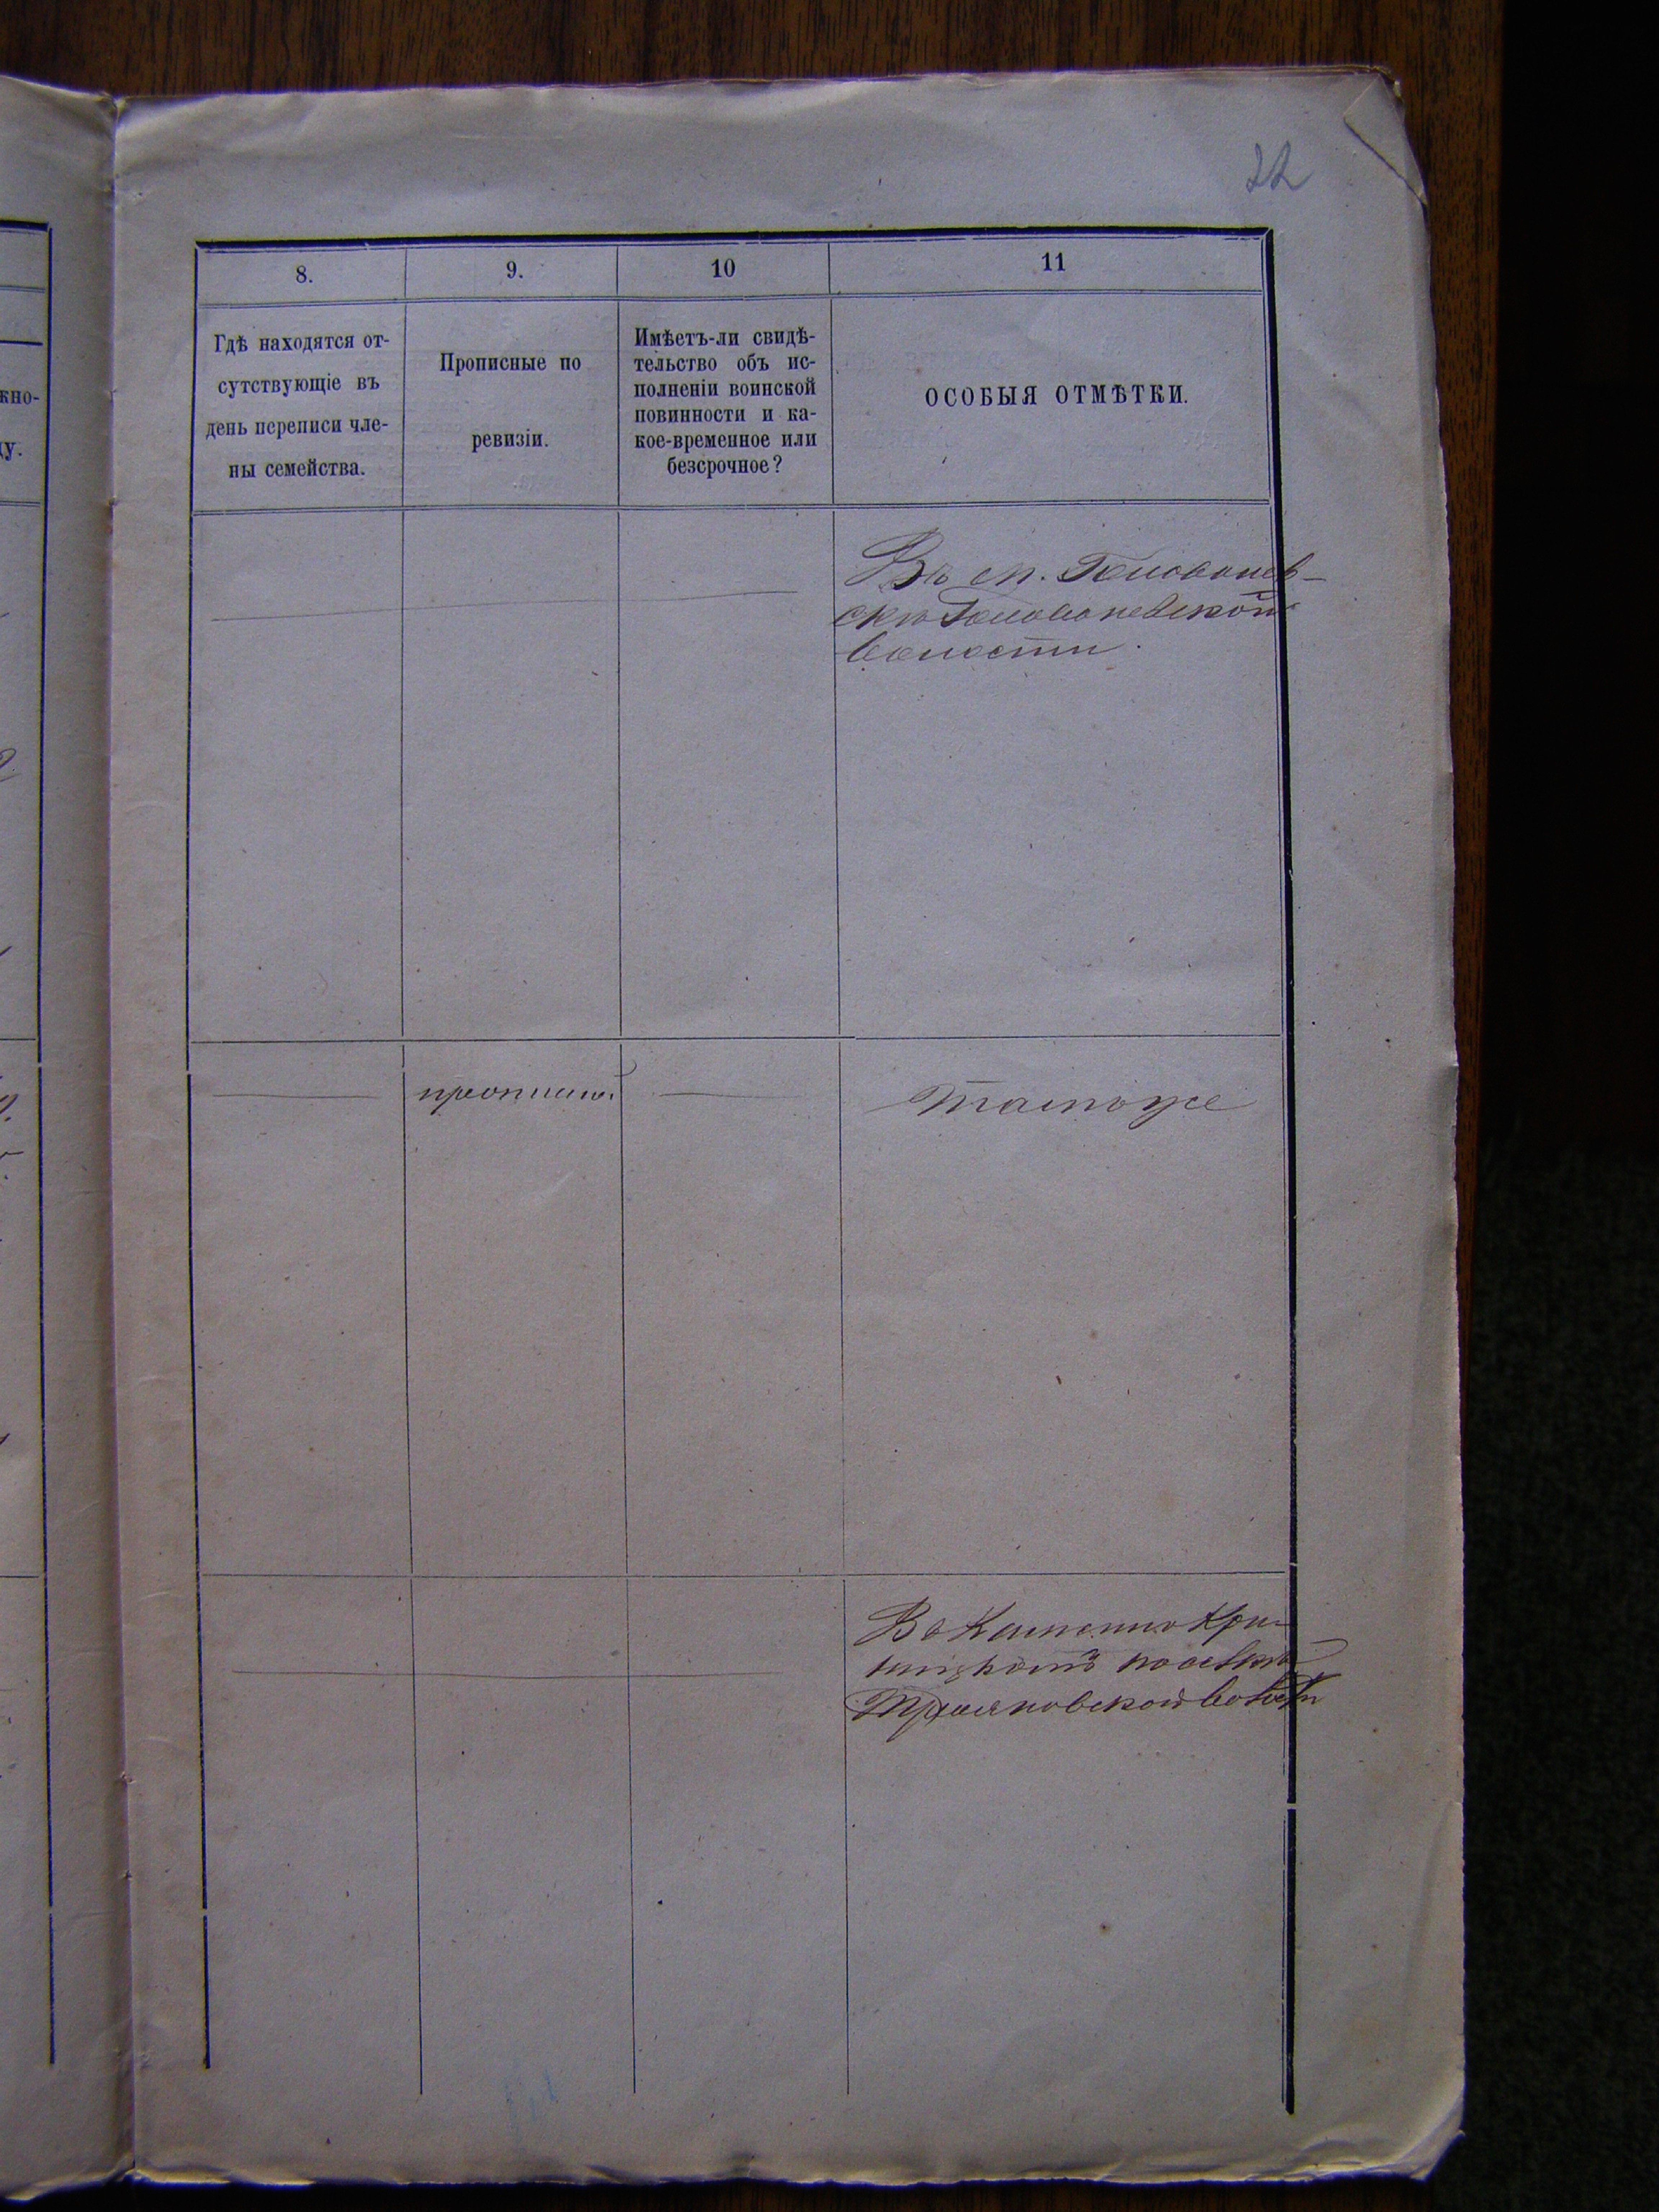 22
8.
9.
10
11
Гдѣ находятся от-
сутствующіе въ
день переписи чле-
ны семейства.
Прописные по
ревизіи.
Имѣетъ-ли свидѣ-
тельство объ ис-
полненіи воинской
повинности и ка-
кое-временное или
безсрочное?
ОСОБЫЯ ОТМѢТКИ.
кно-
ду.
Въ м. Голованев-
скѣ Голованевской
волости.
Тамъ же
Въ Каменно Кри-
волости